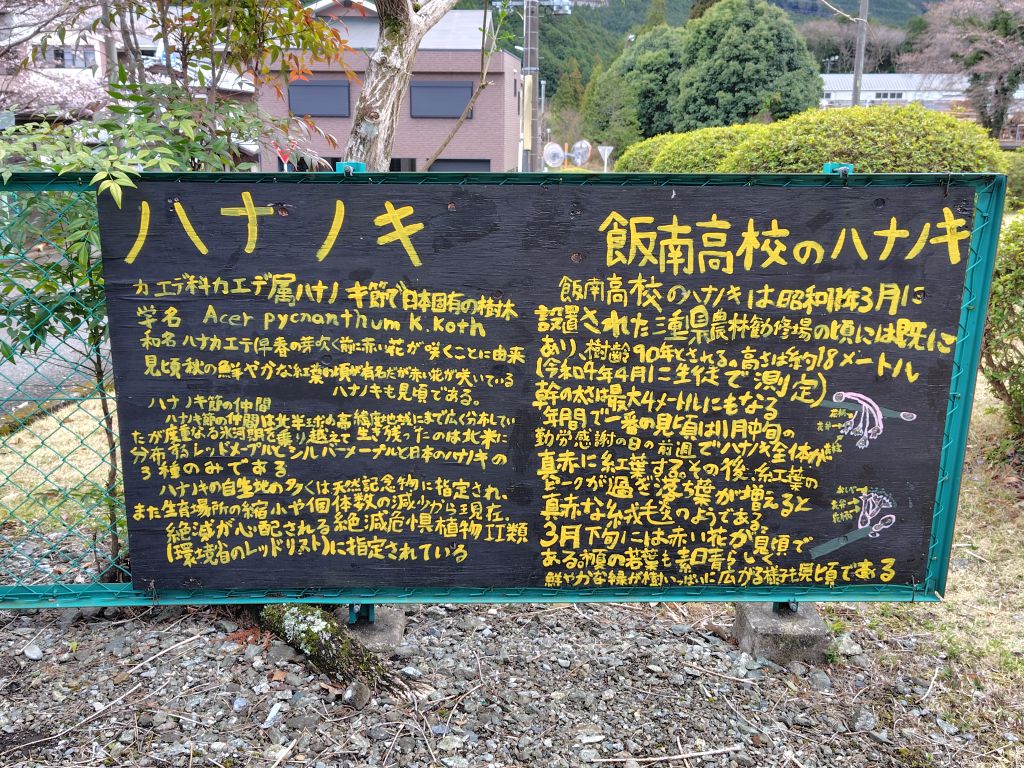 ハナノキ
カエデ科カエデ属ハナノキ節で日本固有の樹木
学名 Acer pycnanthum K.Koth
和名 ハナカエデ(早春の芽吹く前に赤い花が咲くことに由来
見頃 秋の鮮やかな紅葉の頃が有名だが赤い花が咲いている
ハナノキも見頃である。
ハナノキ節の仲間
ハナノキ節の仲間は北半球の高緯度地域にまで広く分布してい
たが度重なる氷河期を乗り越えて生き残ったのは北米に
分布するレッドメープルとシルバーメープルと日本のハナノキの
3種のみである
ハナノキの自生地の多くは天然記念物に指定され、
また生育場所の縮小や個体数の減少から現在、
絶滅が心配される絶滅危惧植物II類
(環境省のレッドリスト)に指定されている
飯南高校のハナノキ
飯南高校のハナノキは昭和11年3月に
設置された三重県農林勧修場の頃には既に
あり、樹齢90年とされる。高さは約18メートル
(令和4年4月に生徒で測定)
幹の太さは最大4メートルにもなる
年間で一番の見頃は11月中旬の
勤労感謝の日の前週でハナノキ全体が
真赤に紅葉する。その後、紅葉の
ピークが過ぎ落ち葉が増えると
真赤な絨毛毯のようである。
3月下旬には赤い花が見頃で
ある。頃の若葉も素晴らしい
鮮やかな緑が樹いっぱいに広がる様子も見頃である